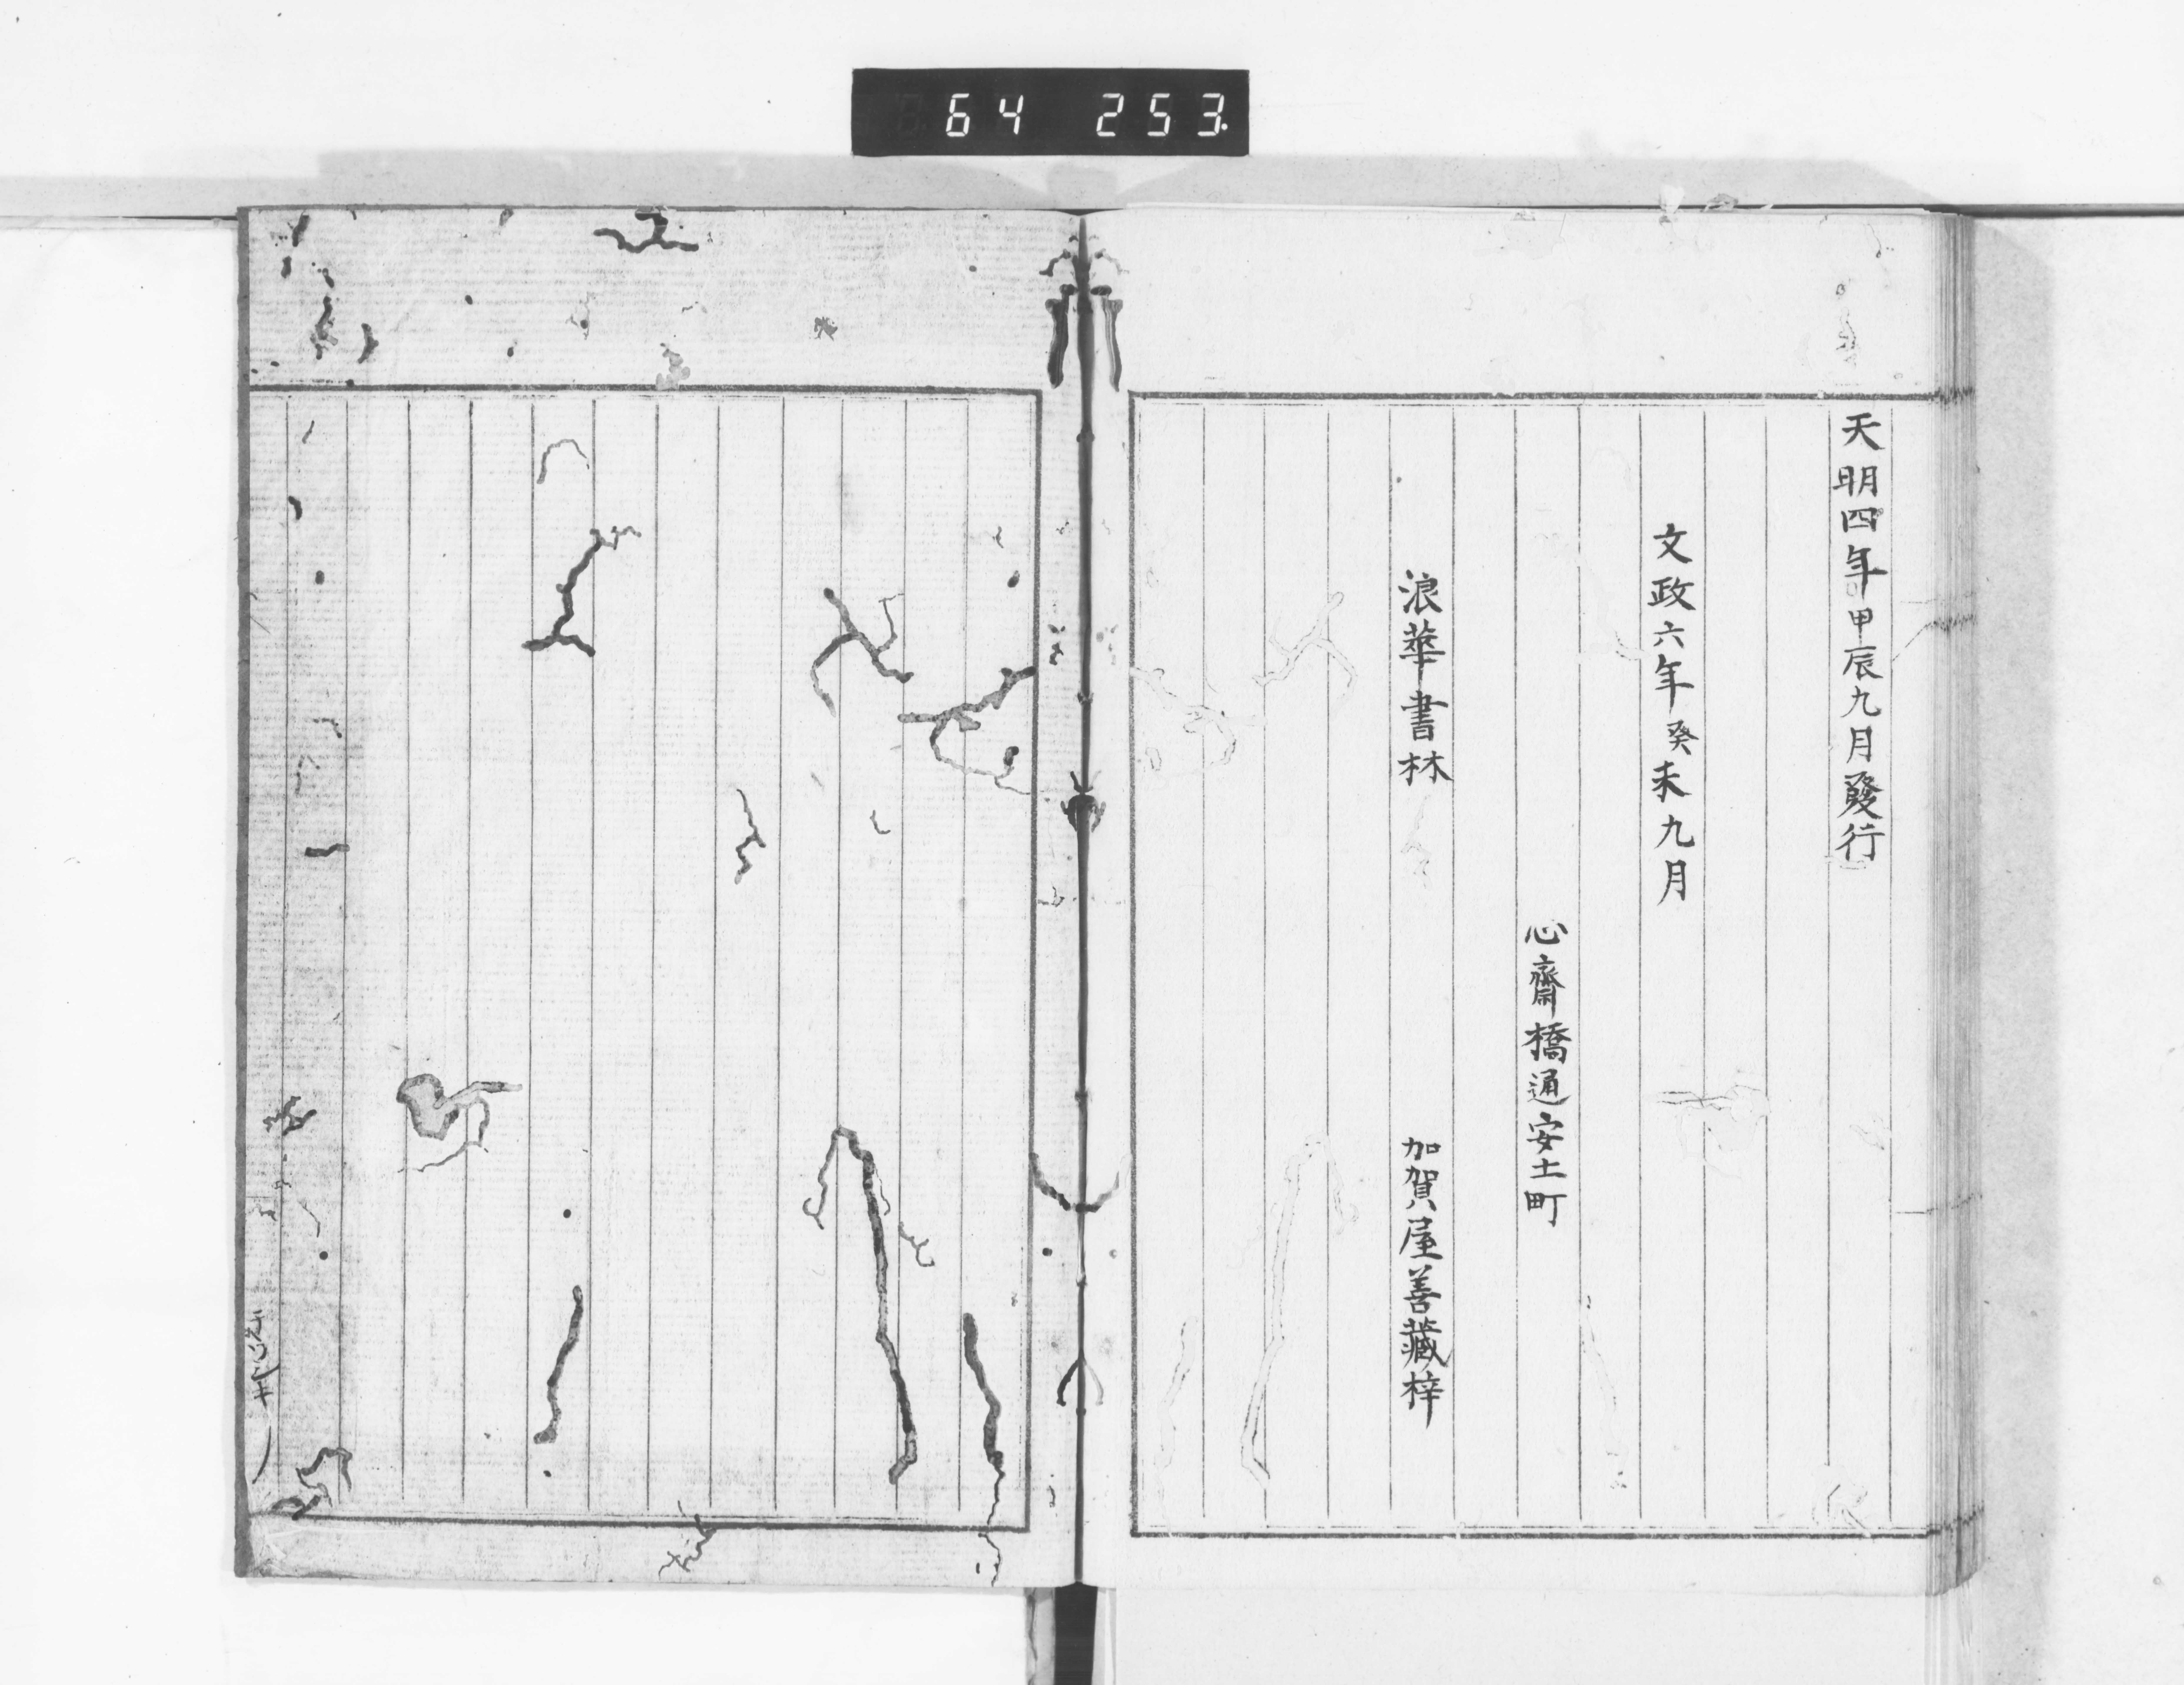 64 253.
天明四年甲辰九月發行
文政六年癸未九月
心齋橋通安土町
浪華書林　加賀屋善藏梓